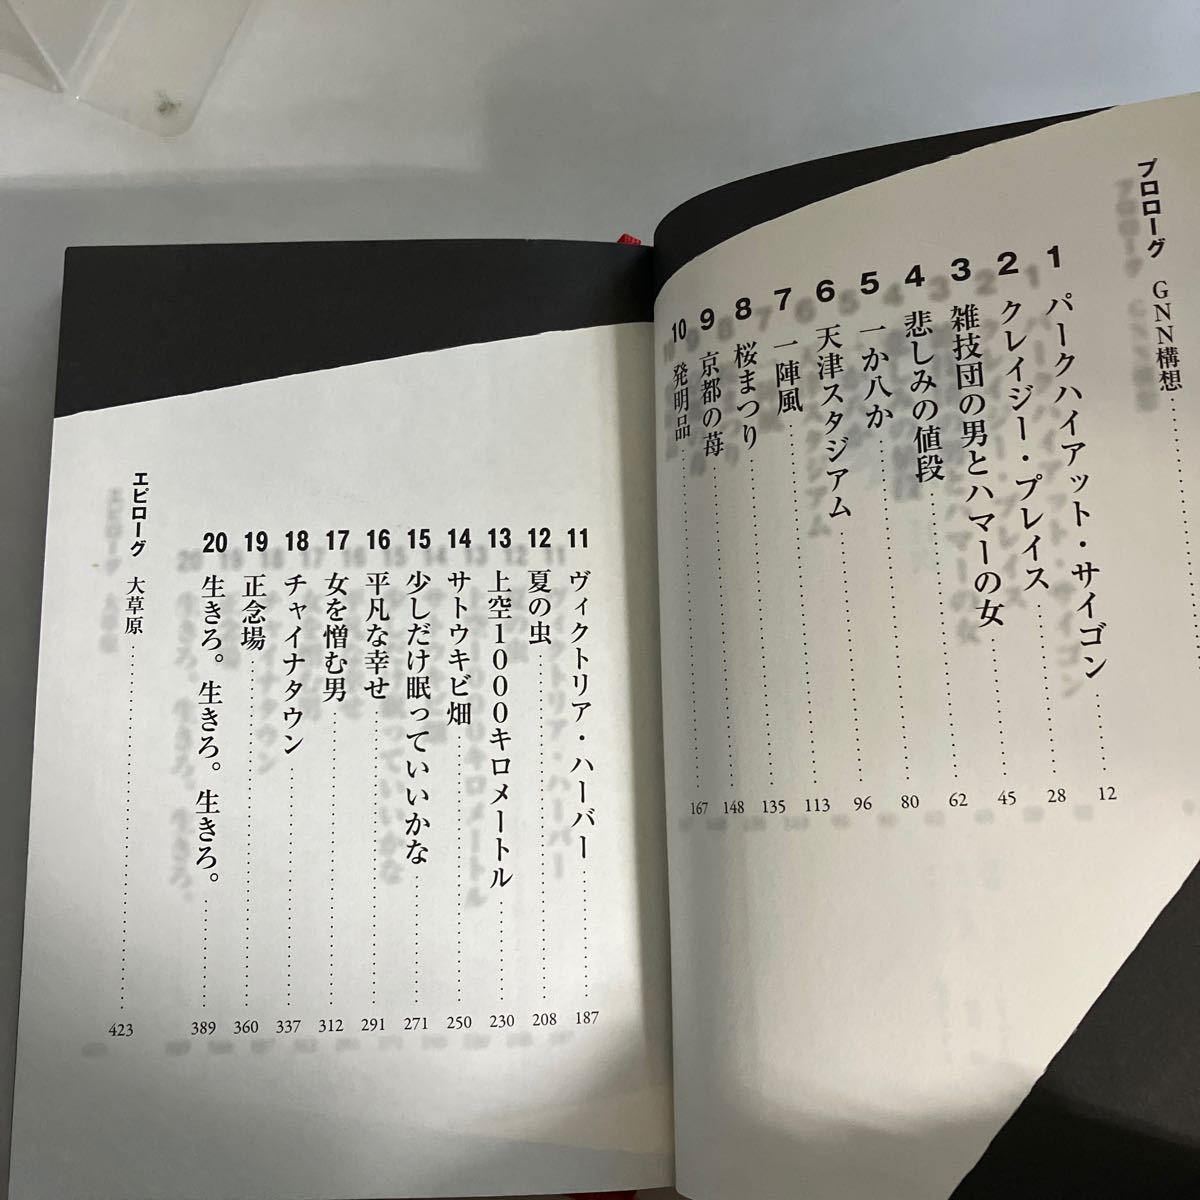 プロローグ GNN構想
1 パークハイアット・サイゴン 12
2 クレイジー・プレイス 28
3 雑技団の男とハマーの女 45
4 悲しみの値段 62
5 一か八か 80
6 天津スタジアム 96
7 一陣風 113
8 桜まつり 135
9 京都の苺 148
10 発明品 167
11 ヴィクトリア・ハーバー 187
12 夏の虫 208
13 上空1000キロメートル 230
14 サトウキビ畑 250
15 少しだけ眠っていいかな 271
16 平凡な幸せ 291
17 女を憎む男 312
18 チャイナタウン 337
19 正念場 360
20 生きろ。生きろ。生きろ。 389
エピローグ 大草原 423